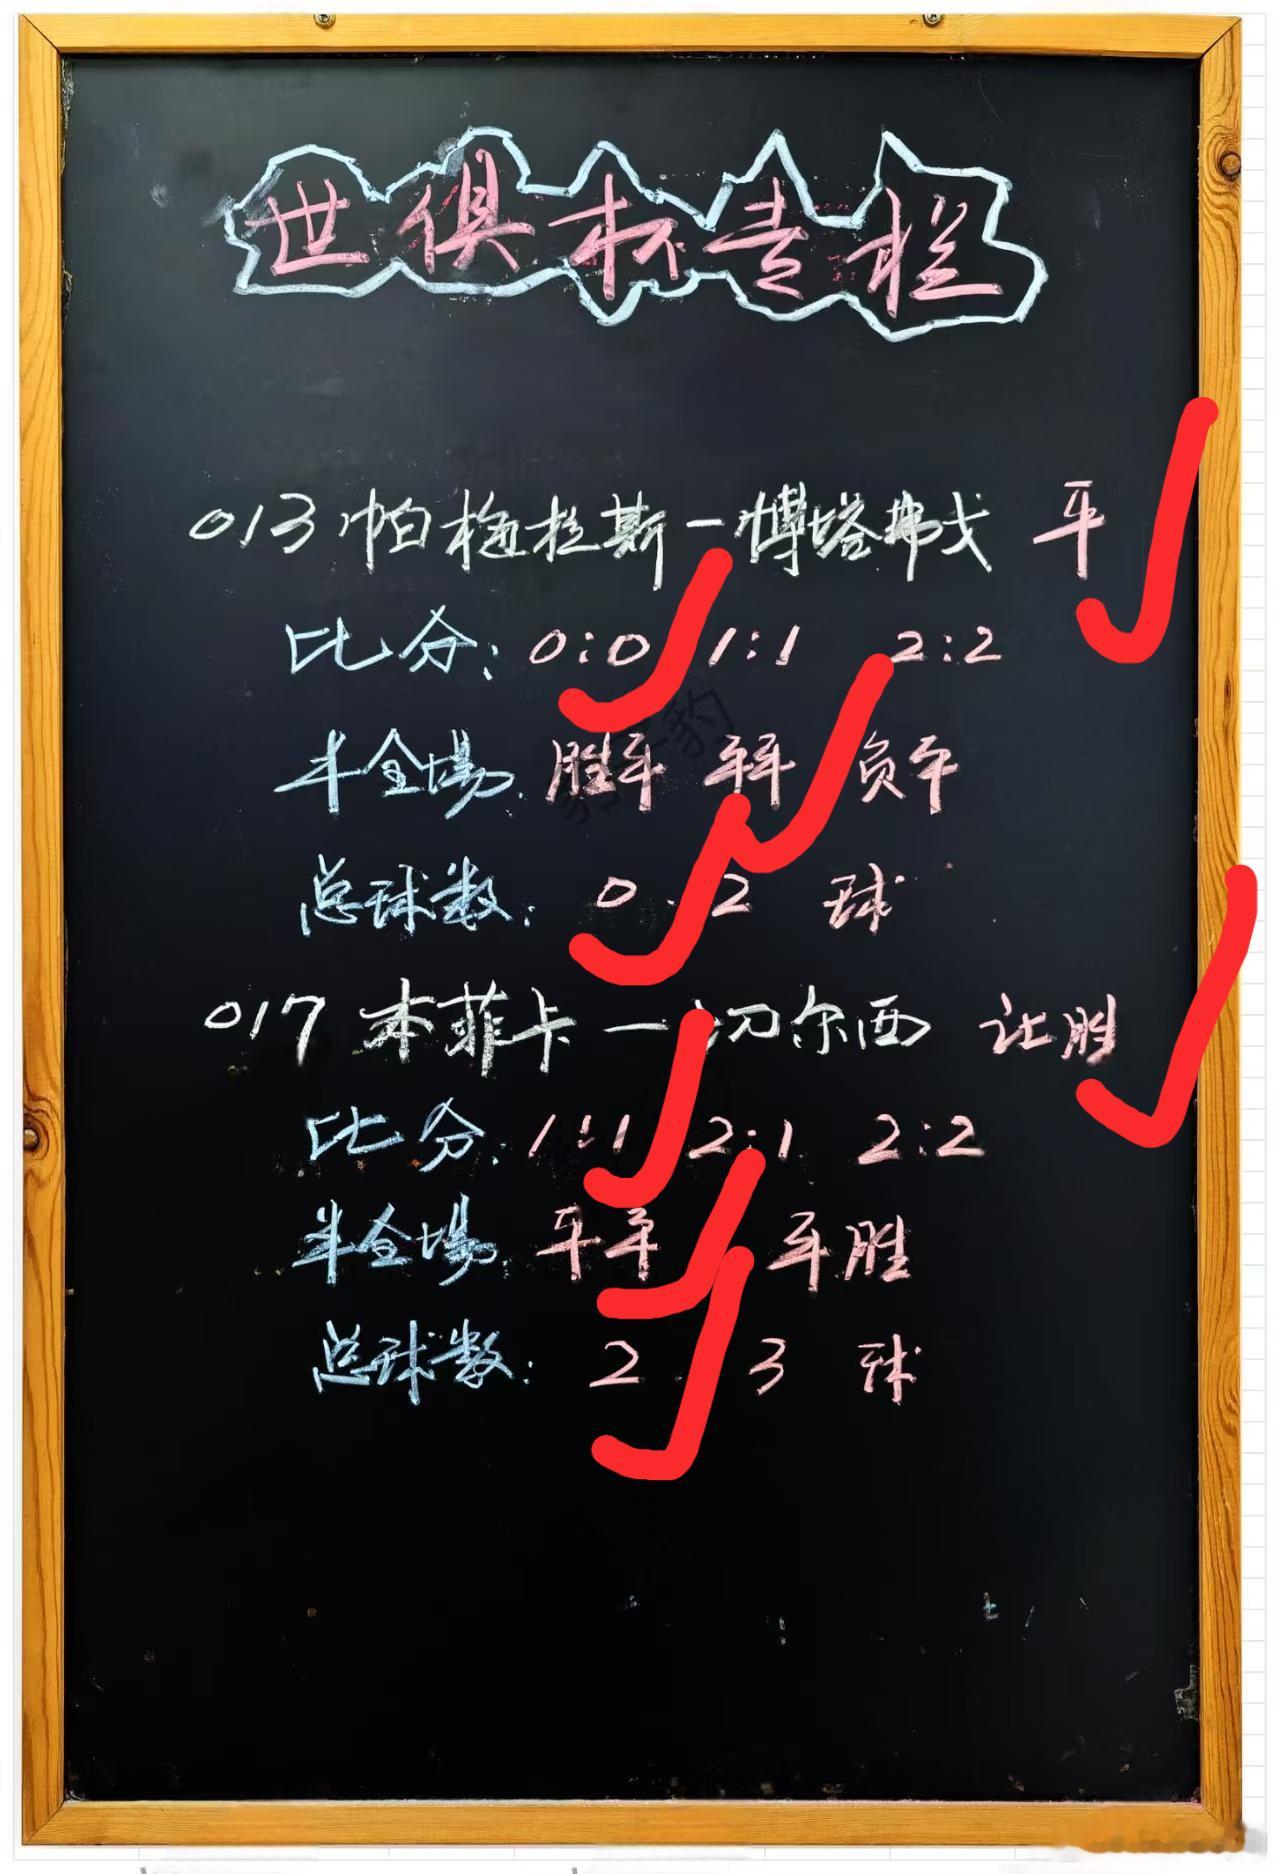 世俱杯专栏
013 帕梅拉斯-博塔弗戈 平
比分: 0:0 1:1 2:2
半全場. 胜平 平平 负平
总球数: 0. 2 球
017 本菲卡-切尔西 让胜
比分: 1:1 2:1 2:2
半全場. 平平 平胜
总球数: 2. 3 球